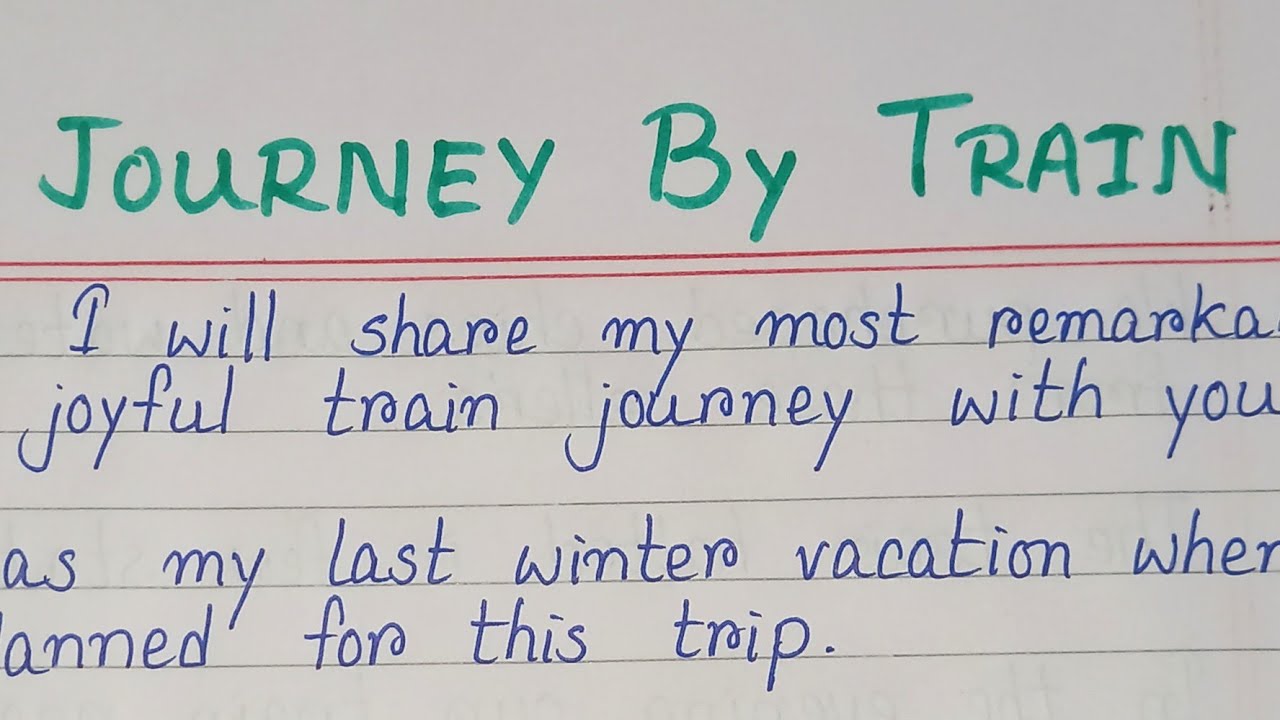 JOURNEY BY TRAIN
I will share my most remarka
joyful train journey with you
as my last winter vacation when
lanned for this trip.